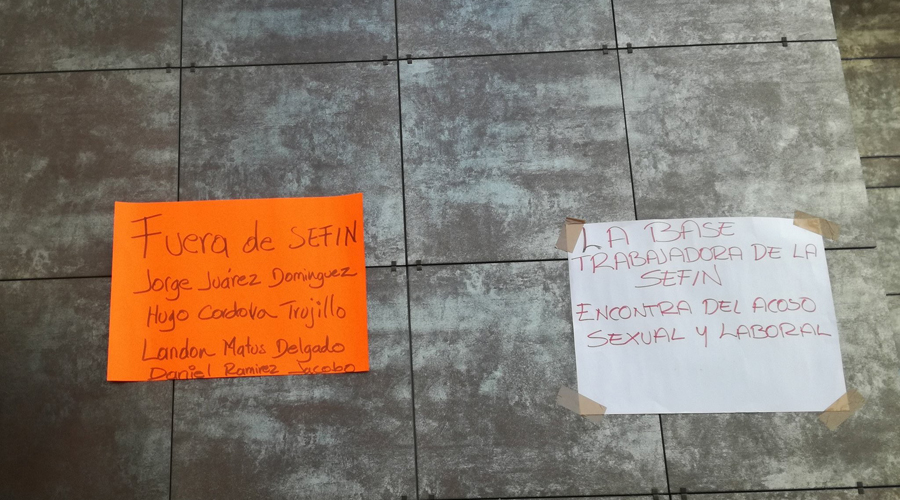 Fuera de SEFIN
Jorge Juárez Dominguez
Hugo Cordova Trujillo
Landon Matus Delgado
Daniel Ramirez Jacobo
LA BASE
TRABAJADORA DE LA
SEFIN
ENCONTRA DEL ACOSO
SEXUAL Y LABORAL